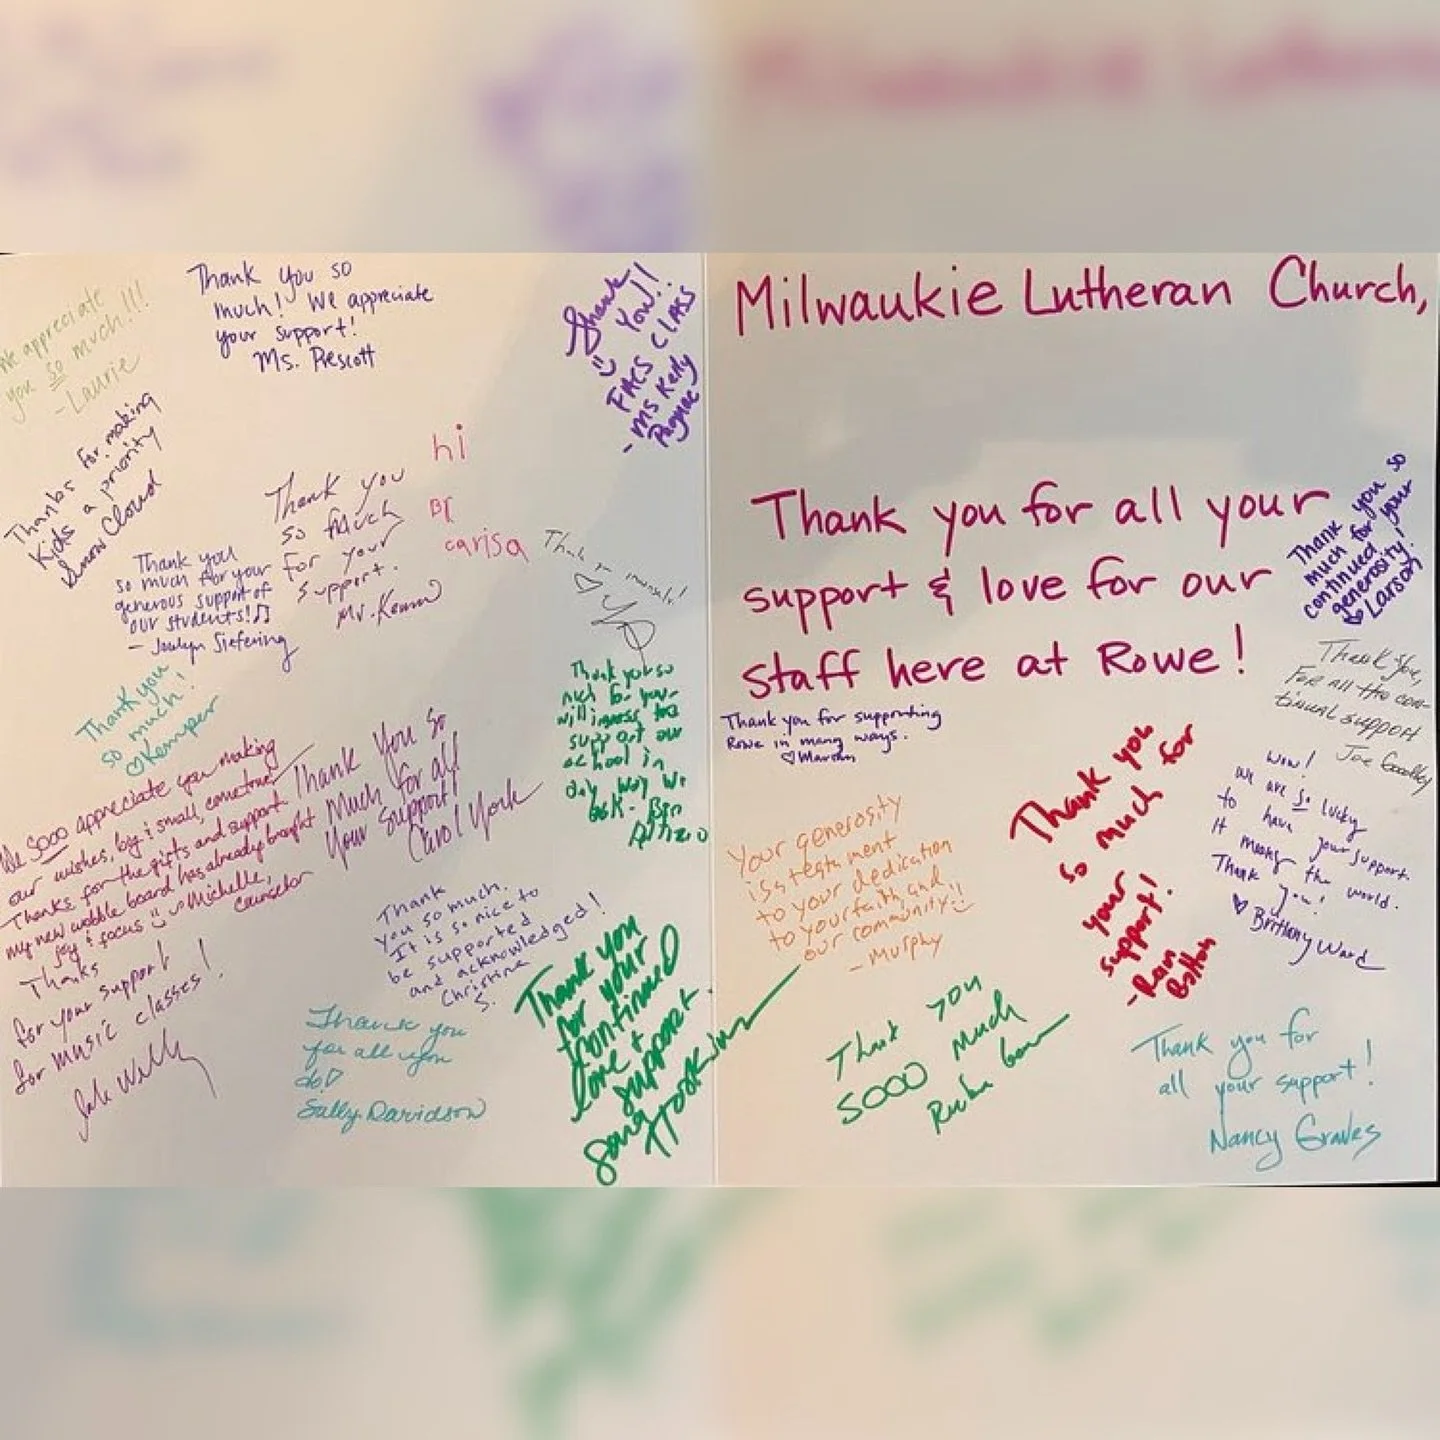 We appreciate
you so much!!!
- Laurie
Thank you so
much! We appreciate
your support!
Ms. Prescott
Thank
You!!
FACS CLASS
- Ms Kelly
Thanks for making
kids a priority
Snow Cloud
hi
BY
carisa
Thank you
so much
for your
support.
Mr.
Thank you
so much for your
generous support of
our students!♫
- Joulyn Siefering
Thank you
so much!
♡Kemper
Thank you so
much for your
willingness to
support our
school in
any way we
ask. Ben
We sooo appreciate you making
our wishes, big & small, come true.
Thanks for the gifts and support.
my new wobble board has already brought
joy & focus ☺ ~Michelle,
counselor
Thank you so
Much for all
Your support!
Carol York
Thank
you so much.
It is so nice to
be supported
and acknowledged!
Christina
S.
Thanks
for your support
for music classes!
Thank you
for all you
do♡
Sally Davidson
Thank you
for your
continued
love +
support.
Milwaukie Lutheran Church,
Thank you for all your
support & love for our
staff here at Rowe!
Thank you so
much for your
continued
generosity!
♡ Larson
Thank you,
For all the con-
tinual support
Joe
Thank you for supporting
Rowe in many ways.
♡Marsha
Your generosity
is a testament
to your dedication
to your faith and
our community ☺
- Murphy
Thank you
so much for
your
support!
Wow!
we are so lucky
to have your support.
It means the world.
Thank you!
♡ Brittany Ward
Thank you
sooo much
Thank you for
all your support!
Nancy Graves